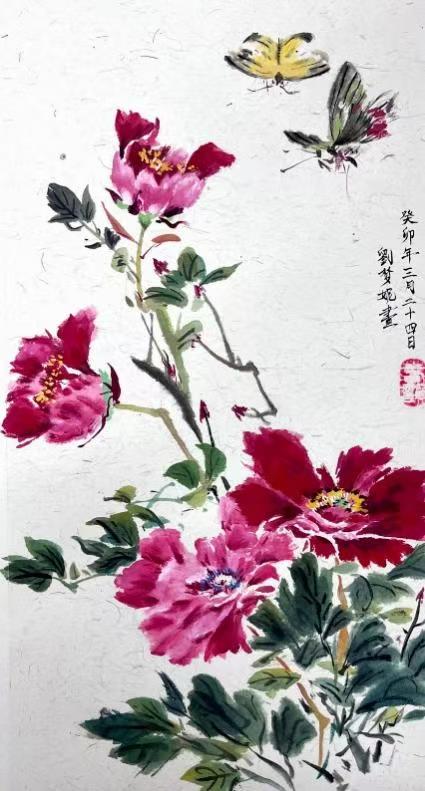 癸卯年三月二十四日
劉梦妮畫